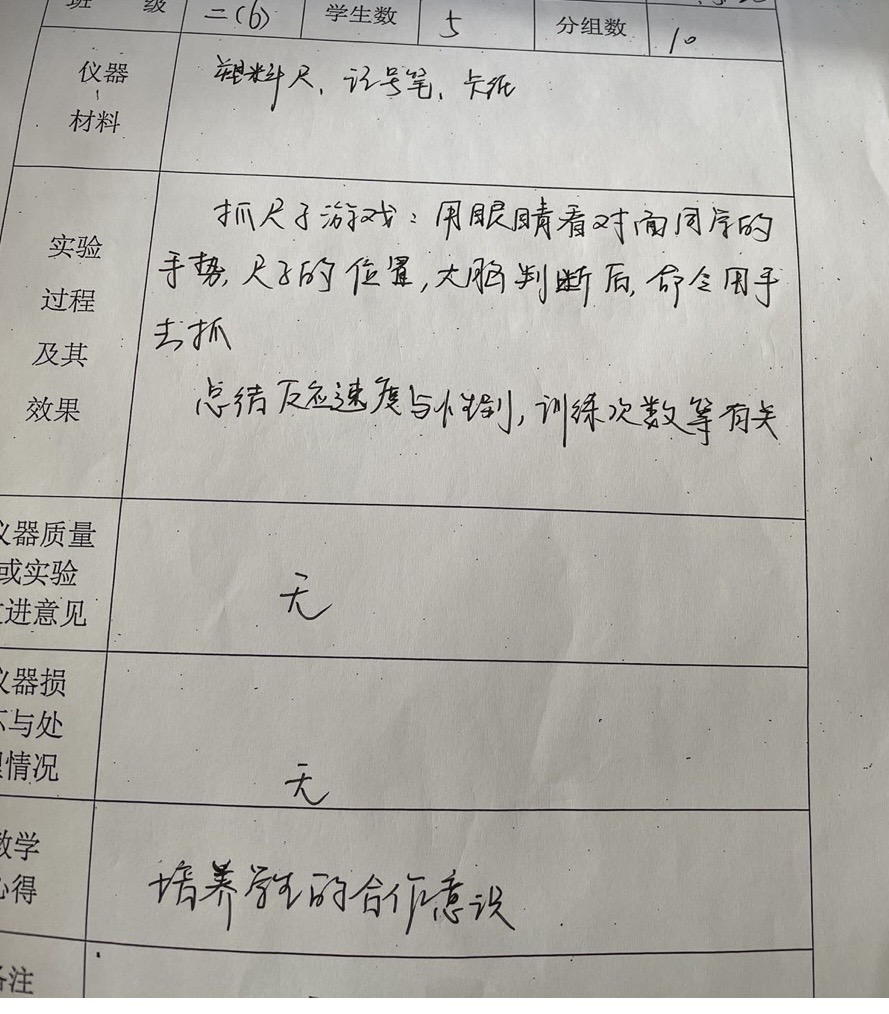 班 级 二(6) 学生数 5 分组数 10
仪器
材料
塑料尺、记号笔、卡纸
实验
过程
及其
效果
抓尺子游戏:用眼睛看对面同学的
手势,尺子的位置,大脑判断后,命令用手
去抓
总结反应速度与性别,训练次数等有关
仪器质量
或实验
改进意见
无
仪器损
坏与处
理情况
无
教学
心得
培养学生的合作意识
备注